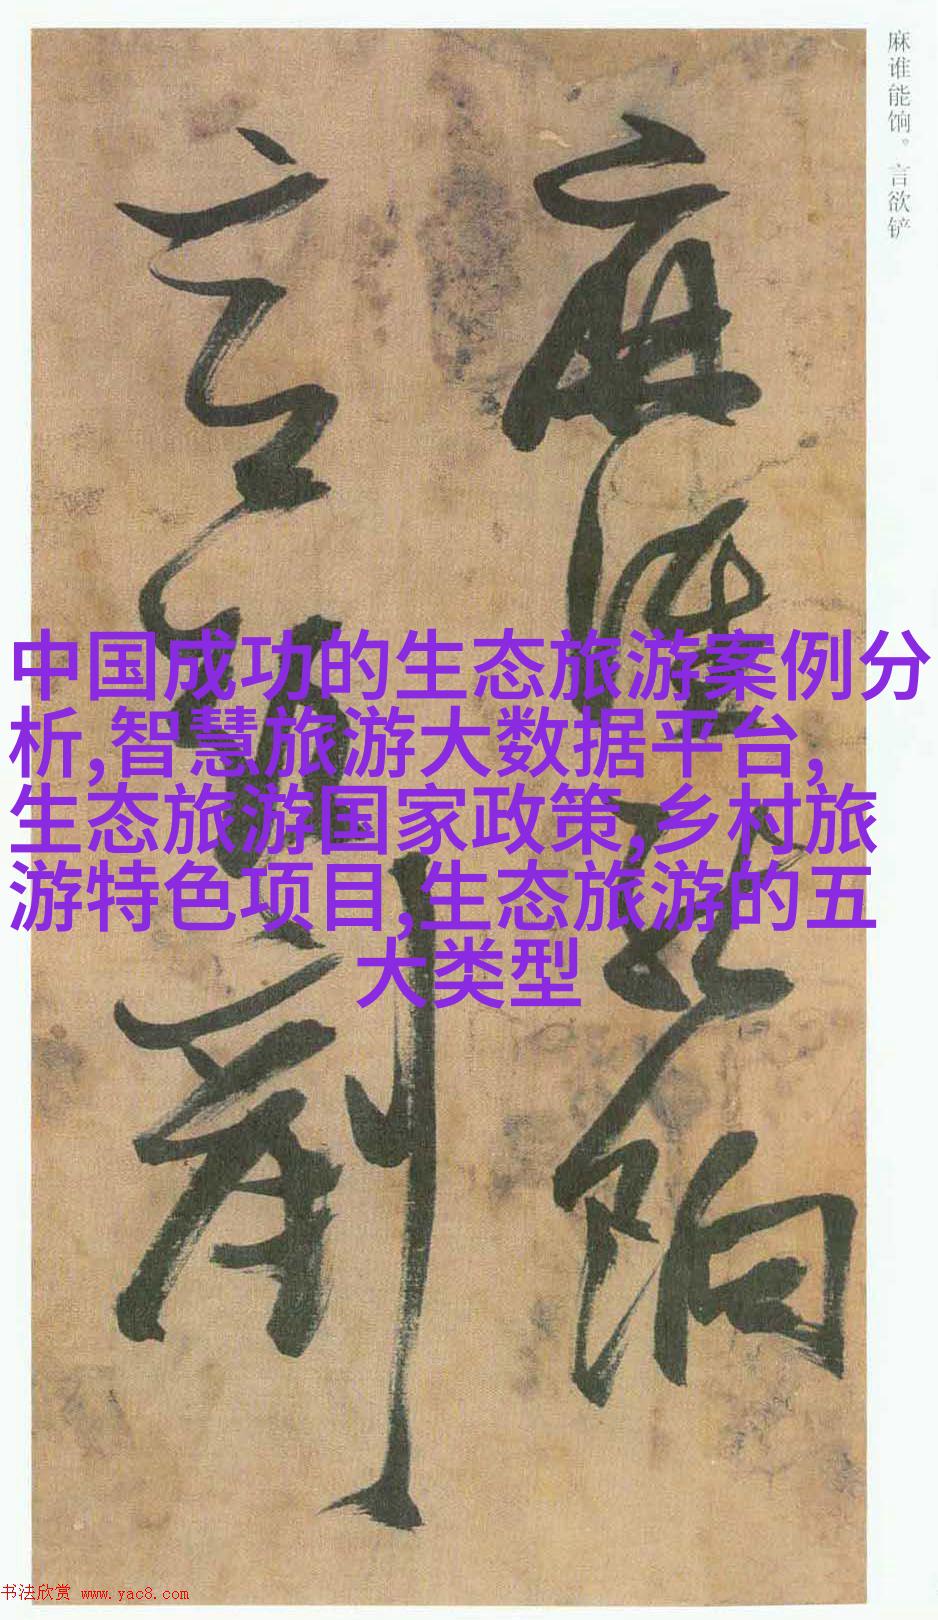 麻谁能饷。言欲铲
麻誰能餉
言欲剷
中国成功的生态旅游案例分
析,智慧旅游大数据平台,
生态旅游国家政策,乡村旅
游特色项目,生态旅游的五
大类型
书法欣赏 www.yac8.com